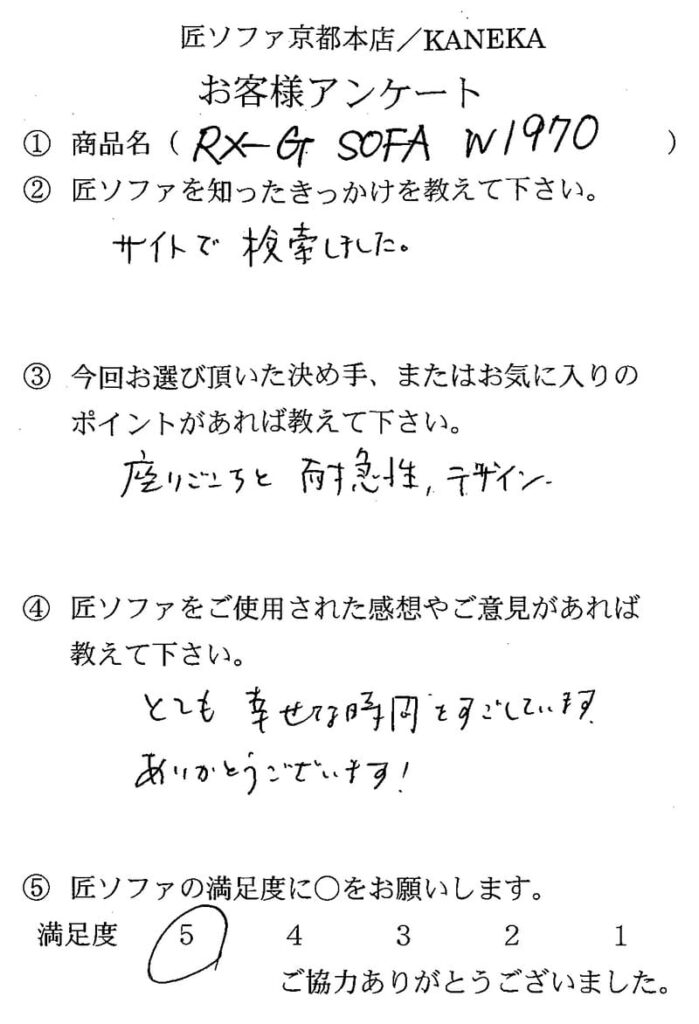 匠ソファ京都本店／KANEKA
お客様アンケート
① 商品名（ RX-G SOFA W1970 ）
② 匠ソファを知ったきっかけを教えて下さい。
サイトで 検索しました。
③ 今回お選び頂いた決め手、またはお気に入りの
ポイントがあれば教えて下さい。
座りごこちと 耐急性, デザイン.
④ 匠ソファをご使用された感想やご意見があれば
教えて下さい。
とても 幸せな時間をすごしています
ありがとうございます!
⑤ 匠ソファの満足度に○をお願いします。
満足度 5 4 3 2 1
ご協力ありがとうございました。